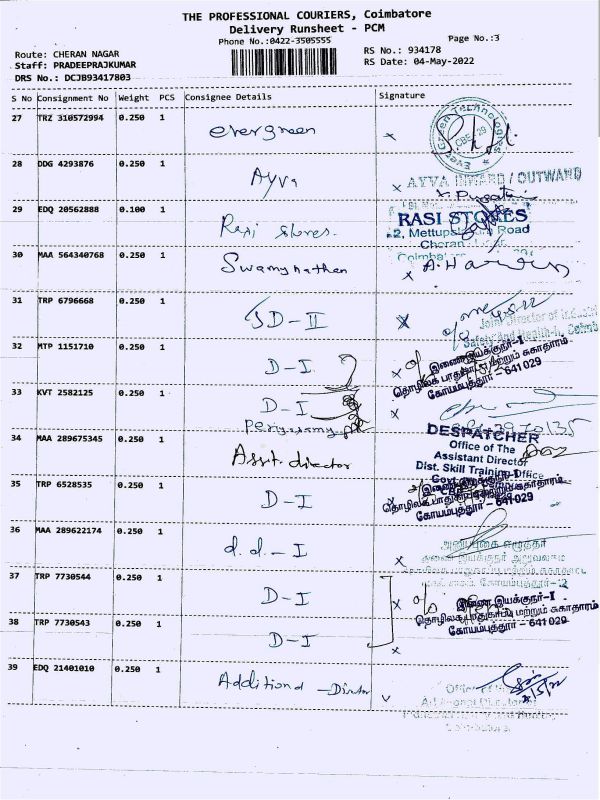 THE PROFESSIONAL COURIERS, Coimbatore
Delivery Runsheet - PCM
Phone No.:0422-3505555
Page No.:3
Route: CHERAN NAGAR
RS No.: 934178
Staff: PRADEEPRAJKUMAR
RS Date: 04-May-2022
DRS No.: DCJB93417803
S No Consignment No Weight PCS Consignee Details Signature
27 TRZ 310572994 0.250 1 evergreen
Ever Green Technologies
CBE - 29
28 DDG 4293876 0.250 1 Ayva
AYVA INWARD / OUTWARD
29 EDQ 20562888 0.100 1 Rasi stores.
RASI STORES
2, Mettupalayam Road
Cheran
Coimbatore
30 MAA 564340768 0.250 1 Swamynathan
31 TRP 6796668 0.250 1 JD-II
Joint Director of Industrial
Safety And Health-II, Coimb
32 MTP 1151710 0.250 1 D-I
இணை இயக்குநர்-I
தொழிலக பாதுகாப்பு மற்றும் சுகாதாரம்
கோயம்புத்தூர் - 641 029
33 KVT 2582125 0.250 1 D-I
Periyasamy
34 MAA 289675345 0.250 1 Assit. director
DESPATCHER
Office of The
Assistant Director
Dist. Skill Training Office
35 TRP 6528535 0.250 1 D-I
தொழிலக பாதுகாப்பு மற்றும் சுகாதாரம்
கோயம்புத்தூர் - 641 029
36 MAA 289622174 0.250 1 d.d-I
37 TRP 7730544 0.250 1 D-I
இணை இயக்குநர்-I
தொழிலக பாதுகாப்பு மற்றும் சுகாதாரம்
கோயம்புத்தூர் - 641 029
38 TRP 7730543 0.250 1 D-I
39 EDQ 21401010 0.250 1 Additional - Director